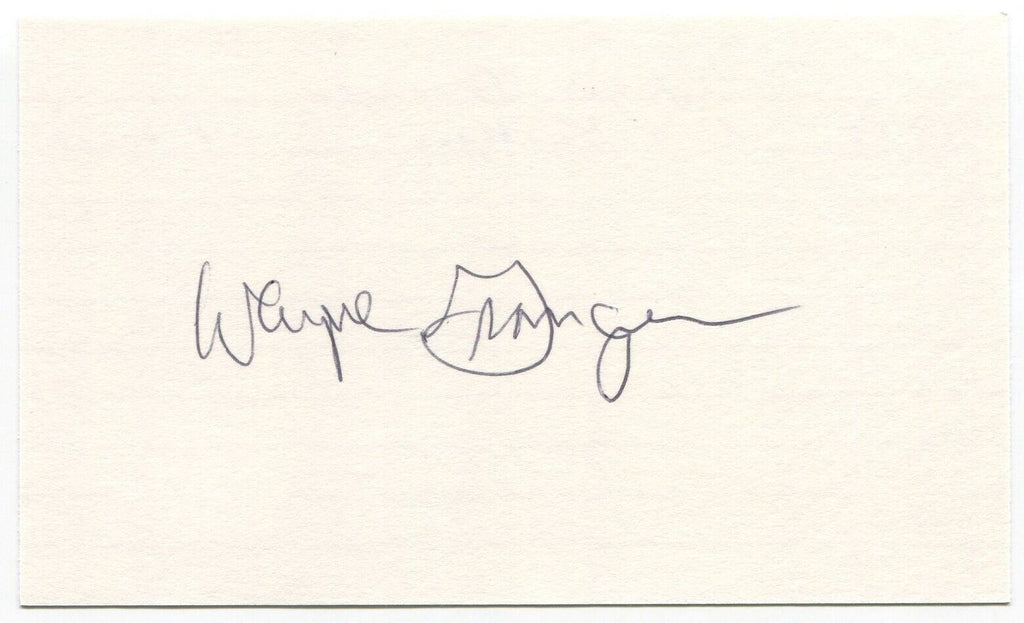 Wayne Granger